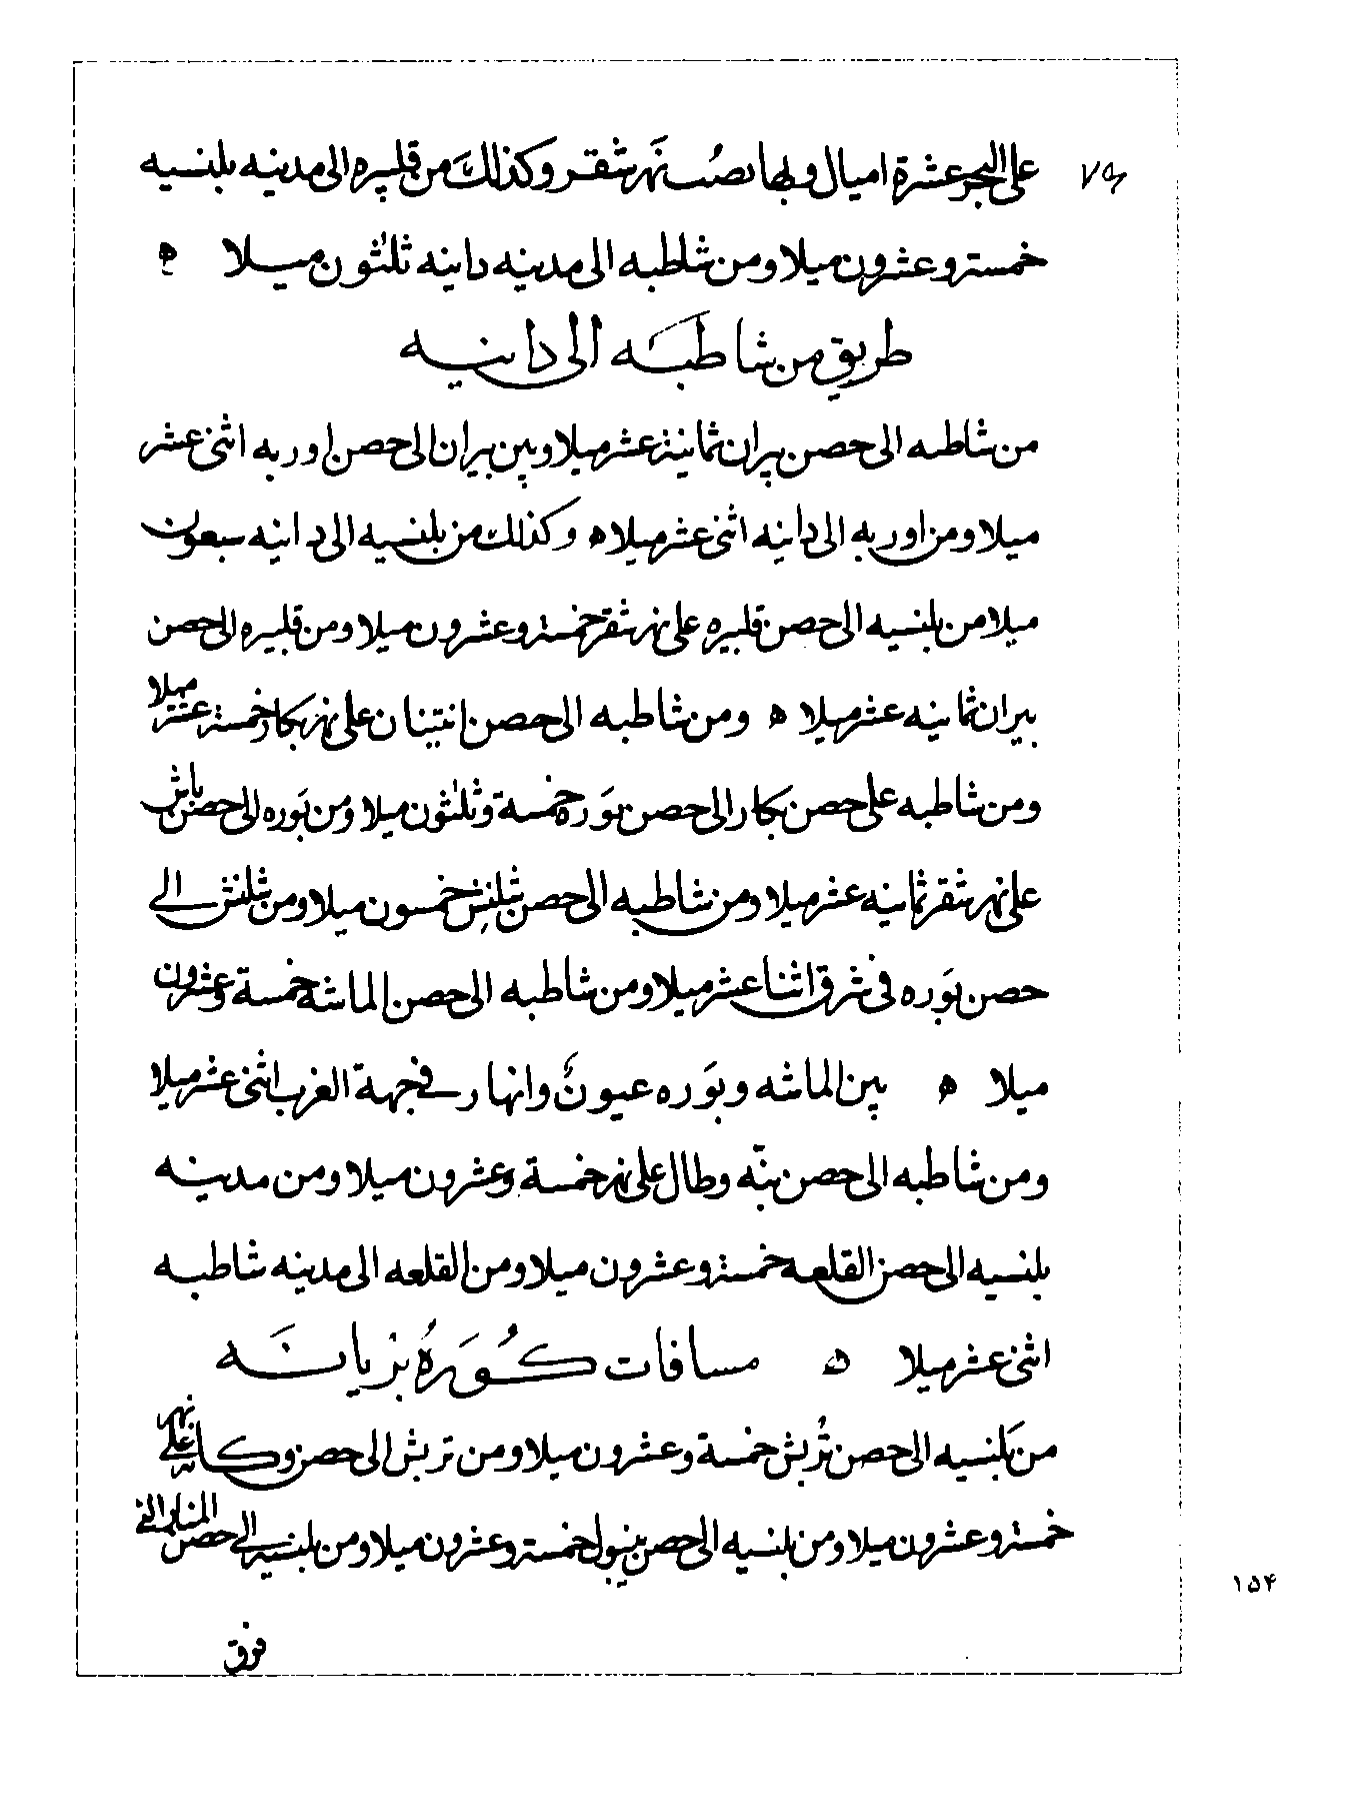 على البحر عشرة اميال وبها يصُب نَهر شقر وكذلكَ من قلييره الى مدينه بلنسيه
٧٥
خمسة وعشرون ميلا ومن شاطبه الى مدينه دانيه ثلٰثون ميلا ه
طريق من شاطبَه الى دانيه
من شاطبه الى حصن بيران ثمانية عشر ميلا وبين بيران الى حصن اوربه اثنى عشر
ميلا ومن اوربه الى دانيه اثنى عشر ميلا ه وكذلك من بلنسيه الى دانيه سبعون
ميلا من بلنسيه الى حصن قلييره على نهر شقر خمسة وعشرون ميلا ومن قلييره الى حصن
بيران ثمانيه عشر ميلا ه ومن شاطبه الى حصن انتينان على نهر بكار خمسة عشر ميلا
ومن شاطبه على حصن بكار الى حصن بَوره خمسة وثلٰثون ميلا ومن بَوره الى حصن ياش
على نهر شقر ثمانيه عشر ميلا ومن شاطبه الى حصن شلنش خمسون ميلا ومن شلنش الى
حصن بَوره فى شرق اثنا عشر ميلا ومن شاطبه الى حصن الماشه خمسة وعشرون
ميلا ه بين الماشه وبَوره عيونٌ وانهار فى جهة الغرب اثنى عشر ميلا
ومن شاطبه الى حصن بنّه وطال على نهر خمسة وعشرون ميلا ومن مدينه
بلنسيه الى حصن القلعه خمسة وعشرون ميلا ومن القلعه الى مدينه شاطبه
اثنى عشر ميلا ه مسافات كُورَةُ بزيانَه
من بَلنسيه الى حصن تُربش خمسة وعشرون ميلا ومن تربش الى حصن وكانه على نهر
خمسة وعشرون ميلا ومن بلنسيه الى حصن بينول خمسة وعشرون ميلا ومن بلنسيه الى حصن المنار التى
فوق
١٥۴